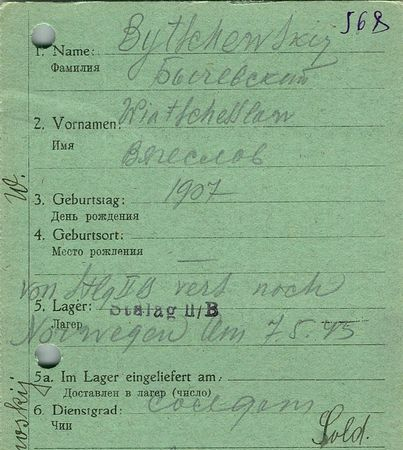 568
Bytschewskij
1. Name:
Фамилия
Бычевский
Wiatscheslaw
2. Vornamen:
Имя
Вячеслов
1907
3. Geburtstag:
День рождения
4. Geburtsort:
Место рождения
—
von Stlg II B vers. nach
5. Lager: Stalag II/B
Лагер
Norwegen am 7.5.43
5a. Im Lager eingeliefert am
Доставлен в лагер (число)
6. Dienstgrad: солдат
Чин
Sold.
W.